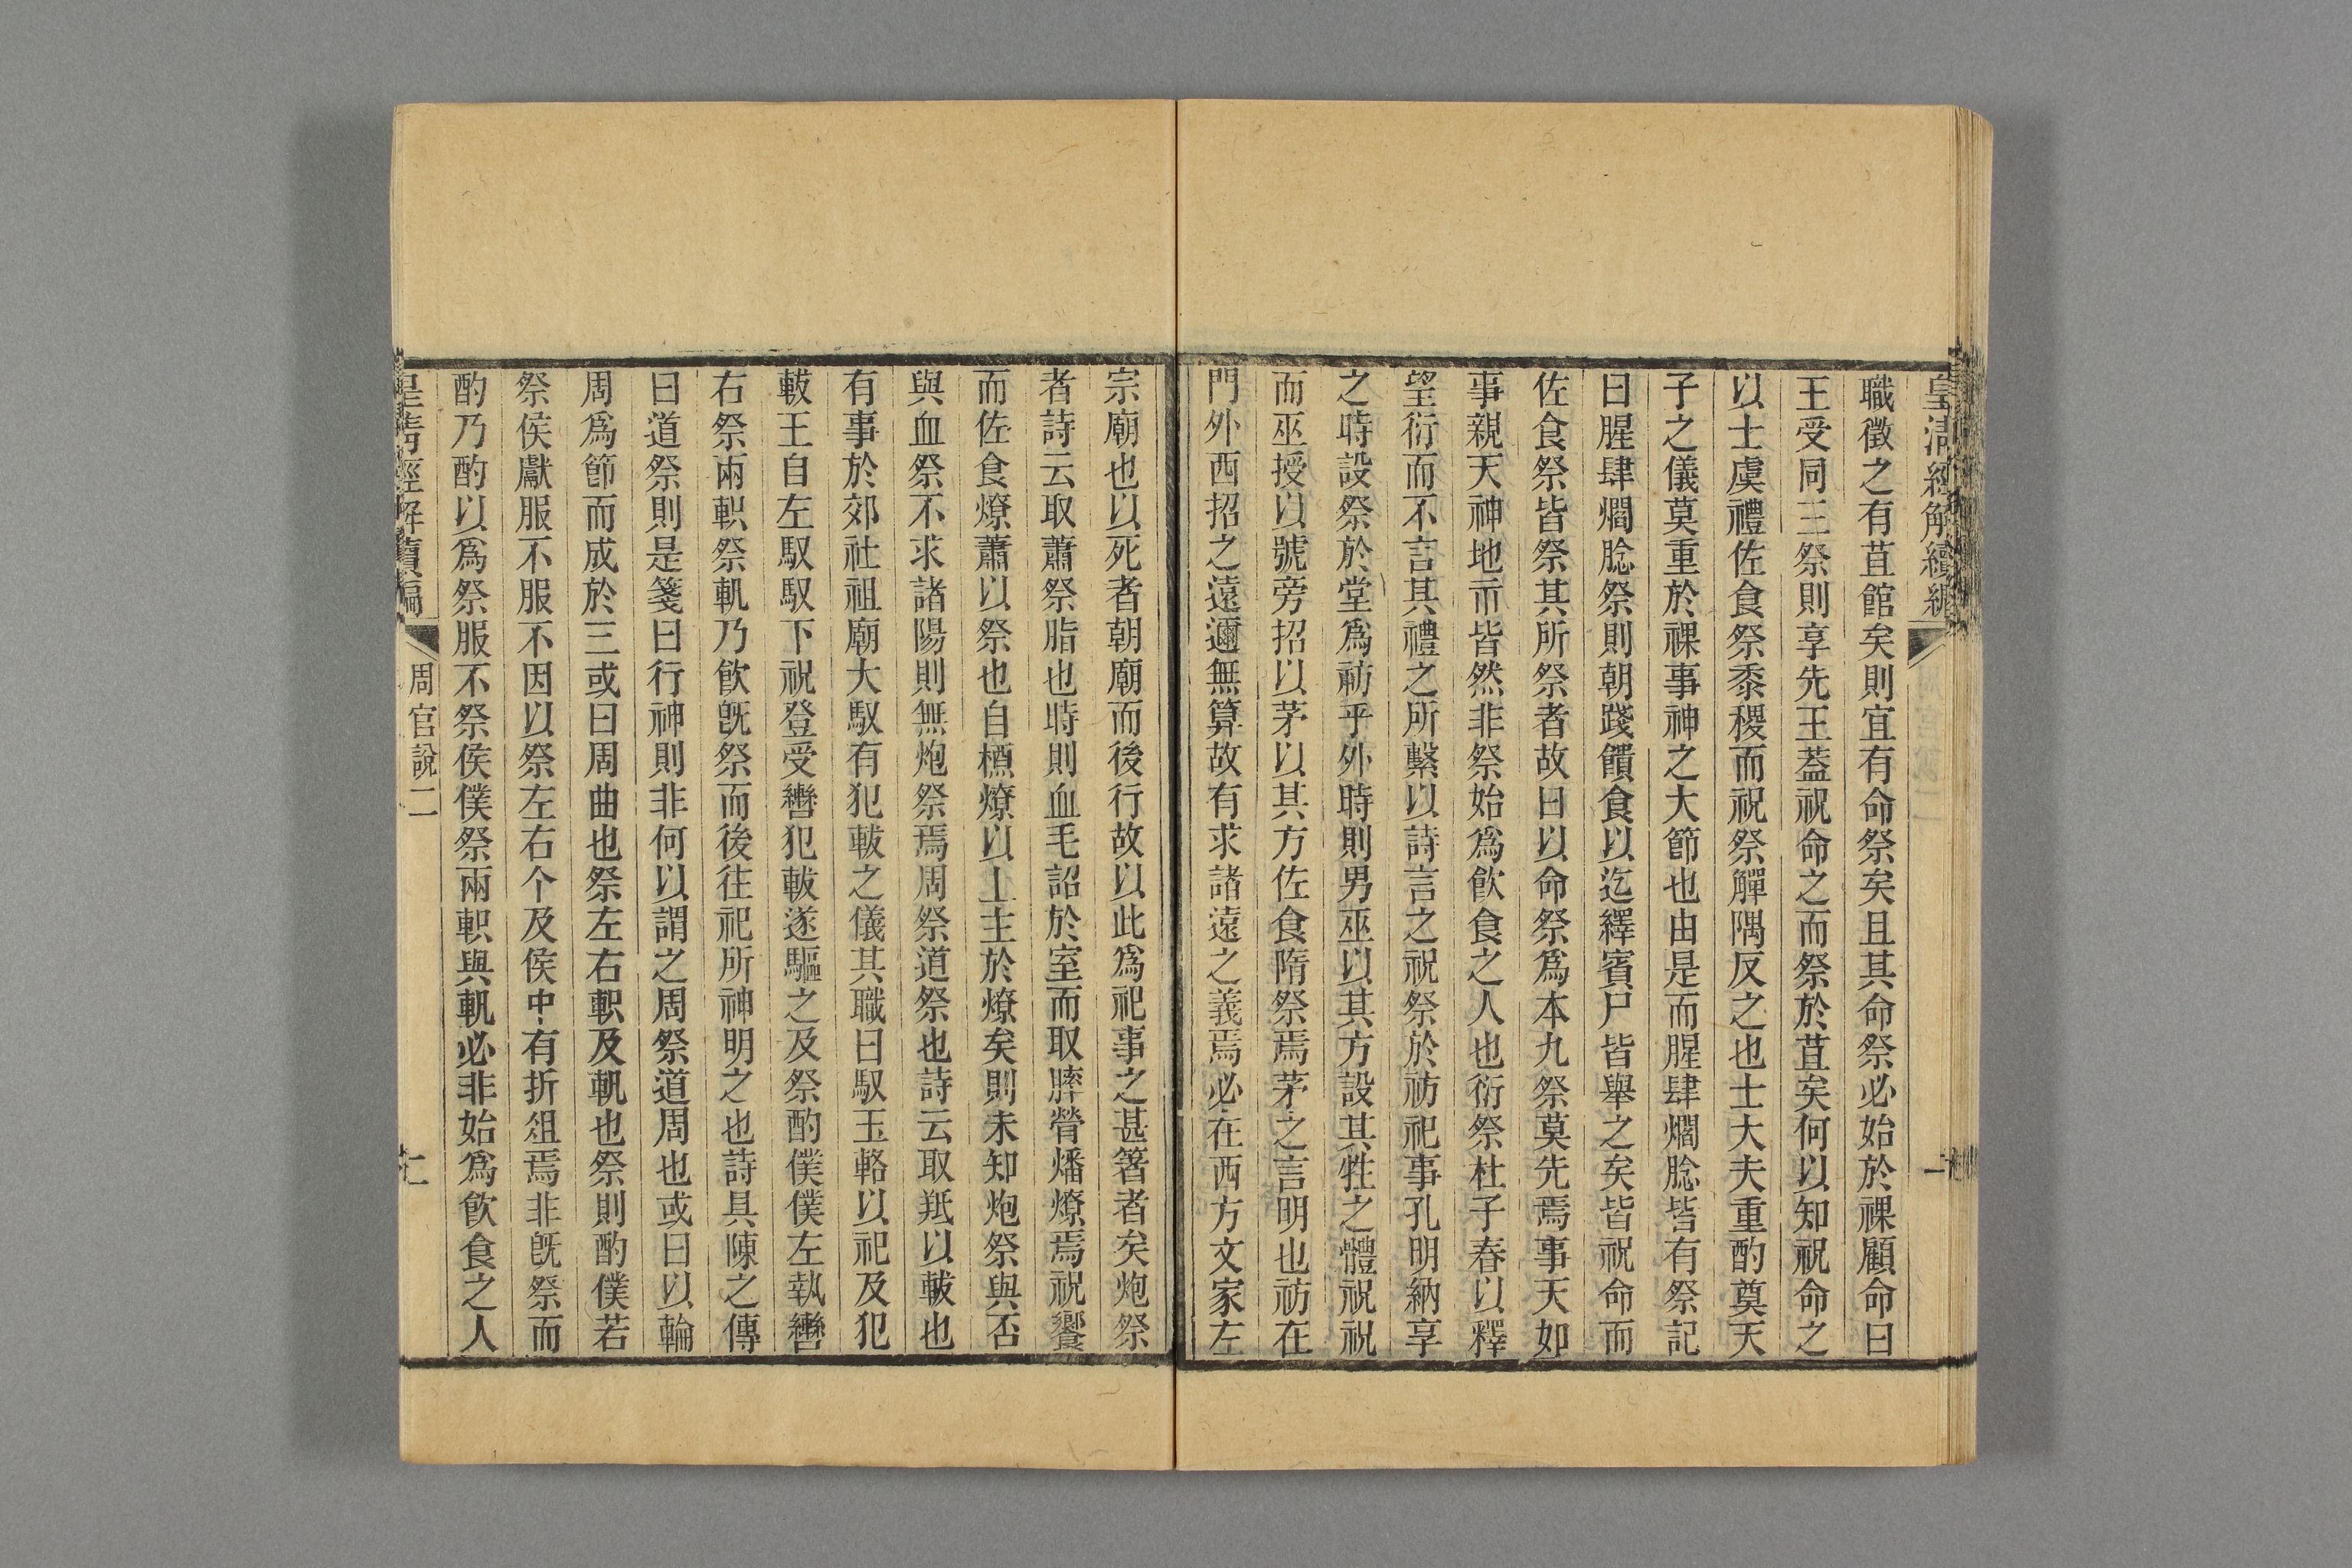 皇清經解續編
一
職徵之有苴館矣則宜有命祭矣且其命祭必始於祼顧命曰
王受同三祭則享先王蓋祝命之而祭於苴矣何以知祝命之
以士虞禮佐食祭黍稷而祝祭觶隅反之也士大夫重酌奠天
子之儀莫重於祼事神之大節也由是而腥肆爓腍皆有祭記
曰腥肆爓腍祭則朝踐饋食以迄繹賓尸皆舉之矣皆祝命而
佐食祭皆祭其所祭者故曰以命祭為本九祭莫先焉事天如
事親天神地示皆然非祭始為飲食之人也衍祭杜子春以釋
望衍而不言其禮之所繫以詩言之祝祭於祊祀事孔明納享
之時設祭於堂為祊乎外時則男巫以其方設其牲之體祝祝
而巫授以號旁招以茅以其方佐食隋祭焉茅之言明也祊在
門外西招之遠邇無算故有求諸遠之義焉必在西方文家左
宗廟也以死者朝廟而後行故以此為祀事之甚箸者矣炮祭
者詩云取蕭祭脂也時則血毛詔於室而取膟膋燔燎焉祝饗
而佐食燎蕭以祭也自槱燎以上主於燎矣則未知炮祭與否
與血祭不求諸陽則無炮祭焉周祭道祭也詩云取羝以軷也
有事於郊社祖廟大馭有犯軷之儀其職曰馭玉輅以祀及犯
軷王自左馭馭下祝登受轡犯軷遂驅之及祭酌僕僕左執轡
右祭兩軹祭軓乃飲旣祭而後往祀所神明之也詩具陳之傳
曰道祭則是箋曰行神則非何以謂之周祭道周也或曰以輪
周為節而成於三或曰周曲也祭左右軹及軓也祭則酌僕若
祭侯獻服不服不因以祭左右个及侯中有折俎焉非旣祭而
酌乃酌以為祭服不祭侯僕祭兩軹與軓必非始為飲食之人
皇清經解續編
周官說二
二